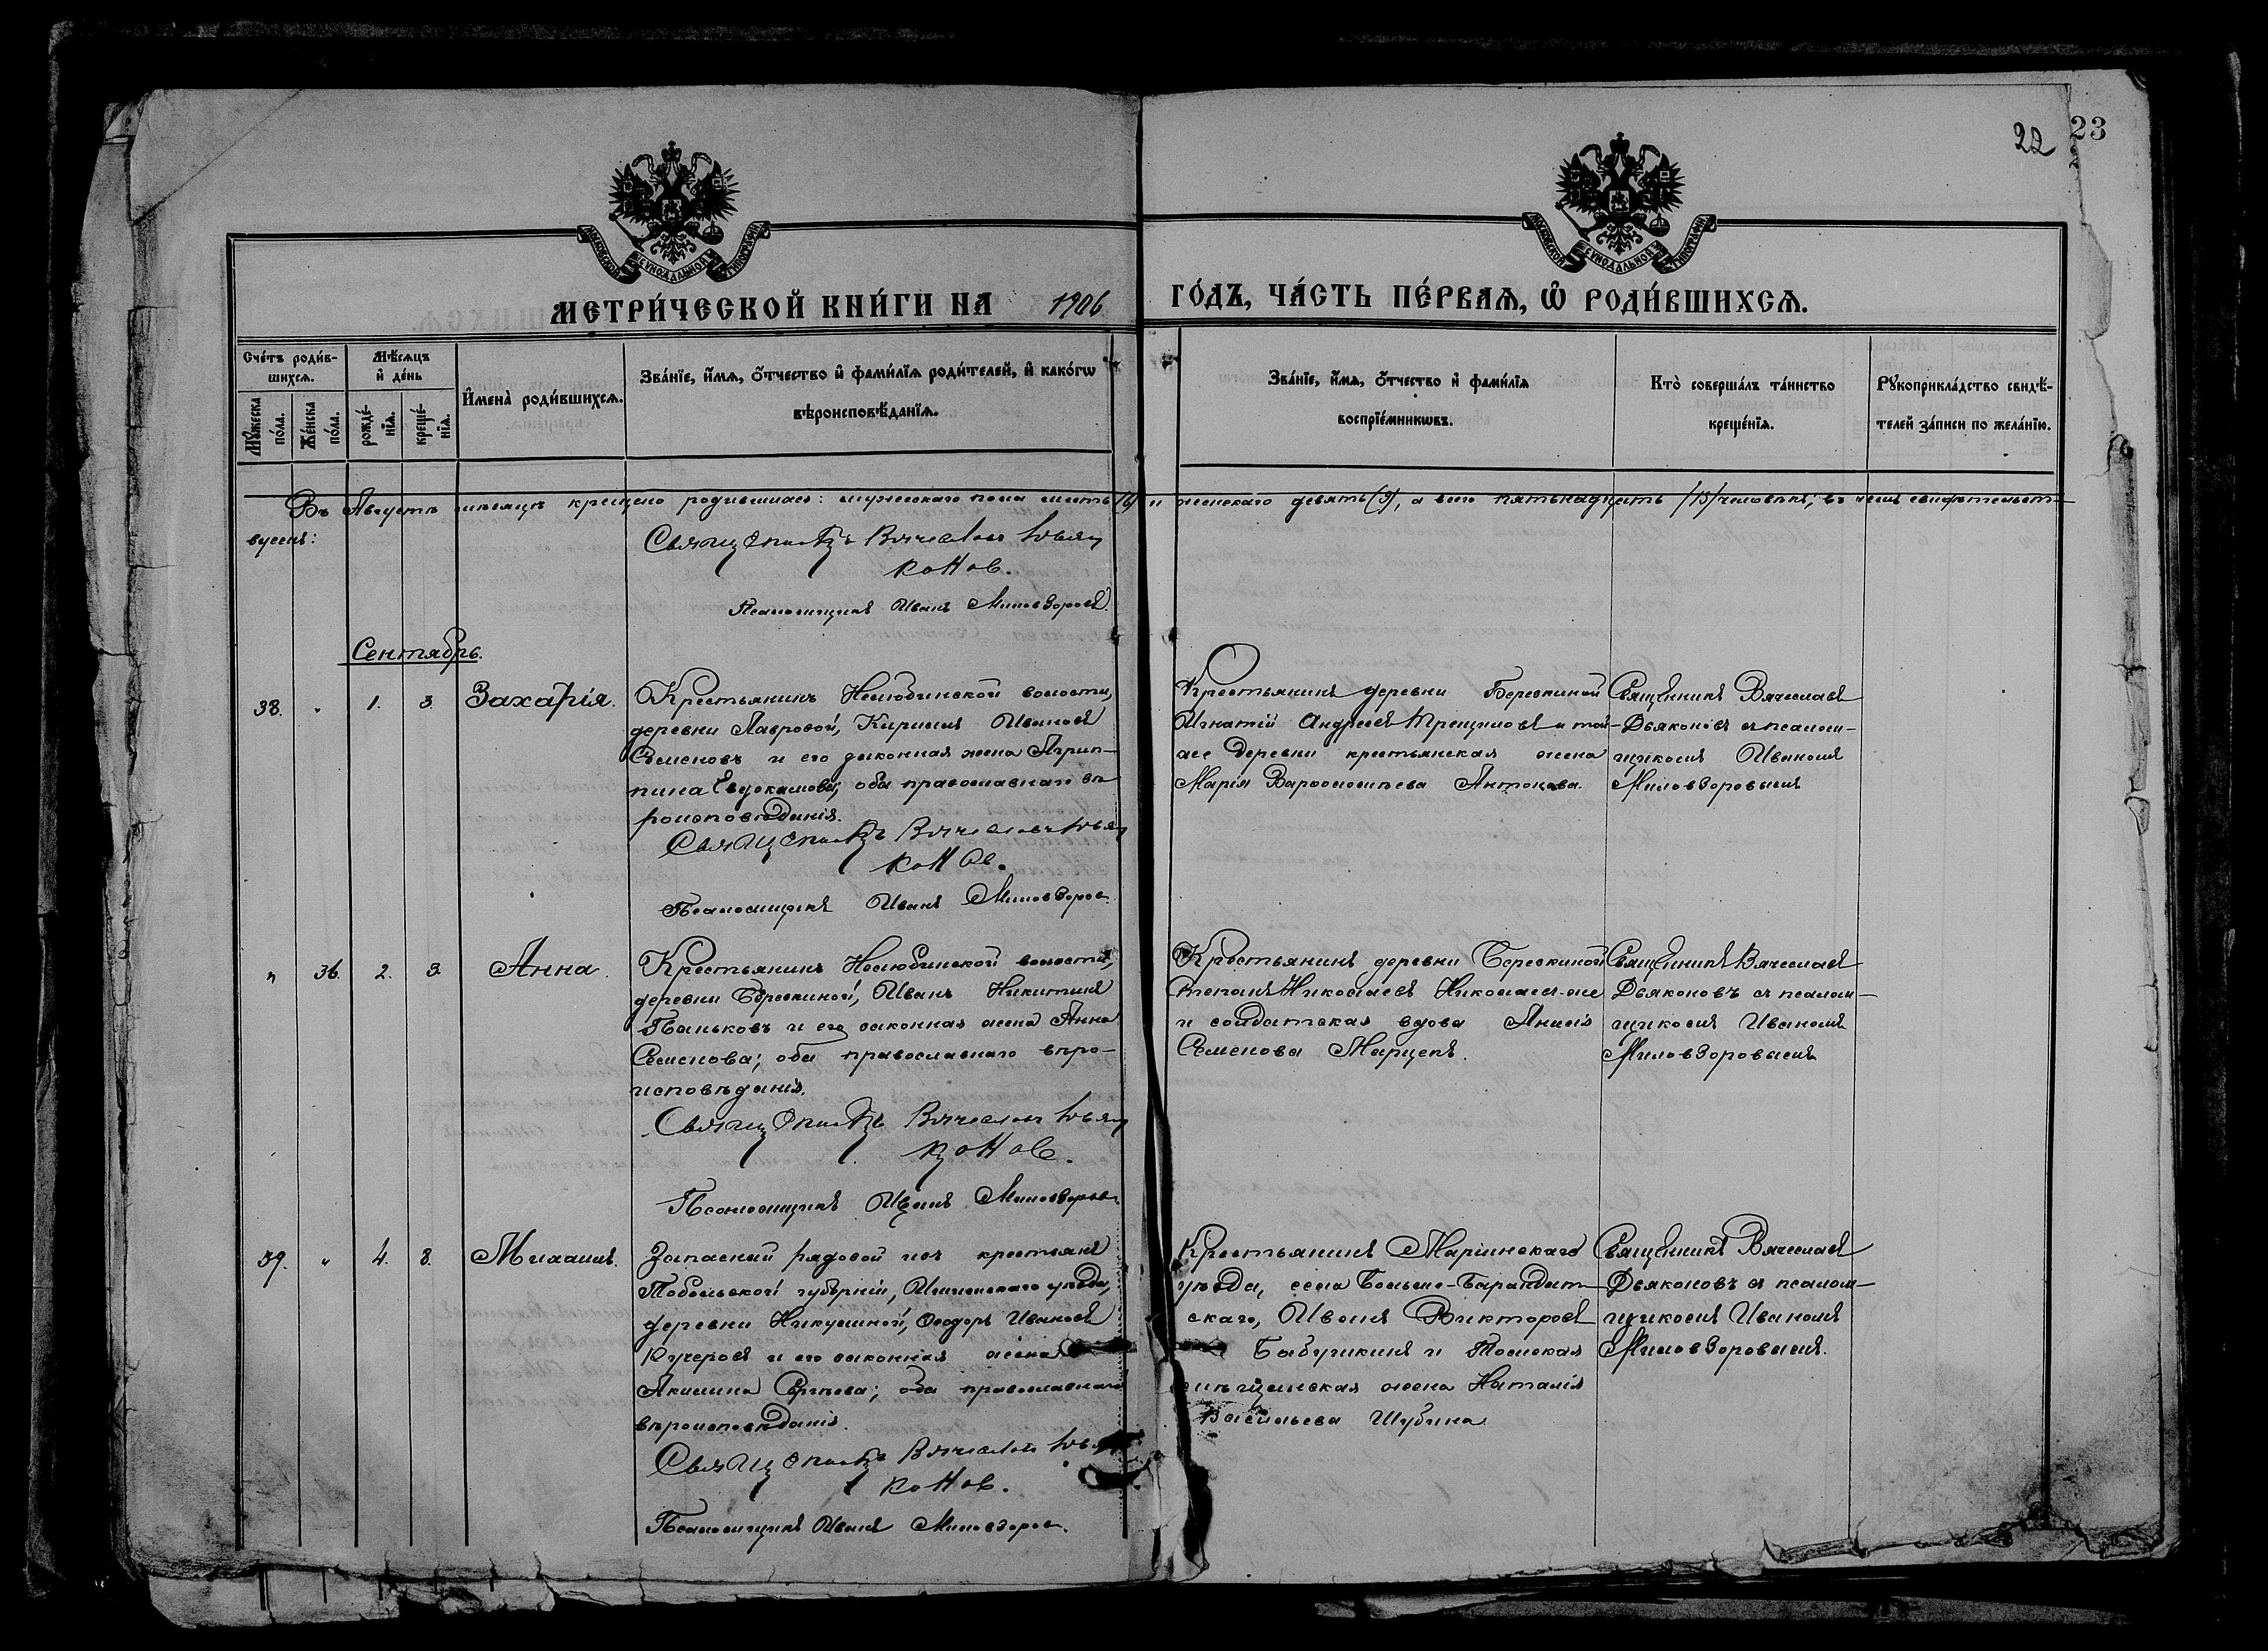 22 23
МОСКОВСКОЙ СѴНОДАЛЬНОЙ ТИПОГРАФІИ
МОСКОВСКОЙ СѴНОДАЛЬНОЙ ТИПОГРАФІИ
МЕТРИ́ЧЕСКОЙ КНИ́ГИ НА 1906 ГО́ДЪ, ЧА́СТЬ ПЕ́РВАѦ, Ѡ҆ РОДИ́ВШИХСѦ.
Сче́тъ роди́в-
шихсѧ.
Мѣ́сѧцъ
и҆ де́нь
Мꙋ́жеска по́ла.
Же́нска по́ла.
рожде́-
нїѧ.
креще́-
нїѧ.
И҆мена̀ роди́вшихсѧ.
Зва́нїе, и҆́мѧ, ѻ҆́тчество и҆ фами́лїѧ роди́телей, и҆ како́гѡ
вѣроисповѣ́данїѧ.
Зва́нїе, и҆́мѧ, ѻ҆́тчество и҆ фами́лїѧ
воспрїе́мникѡвъ.
Кто̀ соверша́лъ та́инство
креще́нїѧ.
Рꙋкоприкла́дство свидѣ́-
телей за́писи по жела́нїю.
Въ Августѣ мѣсяцѣ крещено родившихся: мужескаго пола шесть (6) и женскаго девять (9), а всего пятьнадцать (15) человѣкъ; въ чемъ свидѣтельст-
вуемъ:
Священникъ Вячеслав Дья
конов.
Псаломщикъ Иванъ Миловзоровъ.
Сентябрь.
38. " 1. 3. Захарія.
Крестьянинъ Нелюбинской волости,
деревни Лавровой, Кириллъ Ивановъ
Семеновъ и его законная жена Агрип-
пина Евдокимова; оба православнаго вѣ-
роисповѣданія.
Священникъ Вячеслав Дья
конов.
Псаломщикъ Иванъ Миловзоров.
Крестьянинъ деревни Березкиной
Игнатій Андреевъ Трещиловъ и той-
же деревни крестьянская жена
Марія Варфоломѣева Антонова.
Священникъ Вячеславъ
Дьяконовъ съ псалом-
щикомъ Иваномъ
Миловзоровымъ
" 36. 2. 3. Анна.
Крестьянинъ Нелюбинской волости,
деревни Березкиной, Иванъ Никитинъ
Паньковъ и его законная жена Анна
Семенова; оба православнаго вѣро-
исповѣданія.
Священникъ Вячеслав Дья
конов.
Псаломщикъ Иванъ Миловзоров.
Крестьянинъ деревни Березкиной
Степанъ Николаевъ Николаев-же
и солдатская вдова Анисія
Семенова Марцекъ.
Священникъ Вячеславъ
Дьяконовъ съ псалом-
щикомъ Иваномъ
Миловзоровымъ
39. " 4. 8. Михаилъ.
Запасный рядовой изъ крестьянъ
Тобольской губерніи, Ишимскаго уѣзда,
деревни Никулиной, Ѳеодоръ Ивановъ
Кучеровъ и его законная жена
Акилина Сергѣева; оба православнаго
вѣроисповѣданія.
Священникъ Вячеслав Дья
конов.
Псаломщикъ Иванъ Миловзоров.
Крестьянинъ Маріинскаго
уѣзда, села Больше-Барандат-
скаго, Иванъ Викторовъ
Бабушкинъ и Томская
мѣщанская жена Наталія
Васильева Шубина
Священникъ Вячеславъ
Дьяконовъ съ псалом-
щикомъ Иваномъ
Миловзоровымъ.